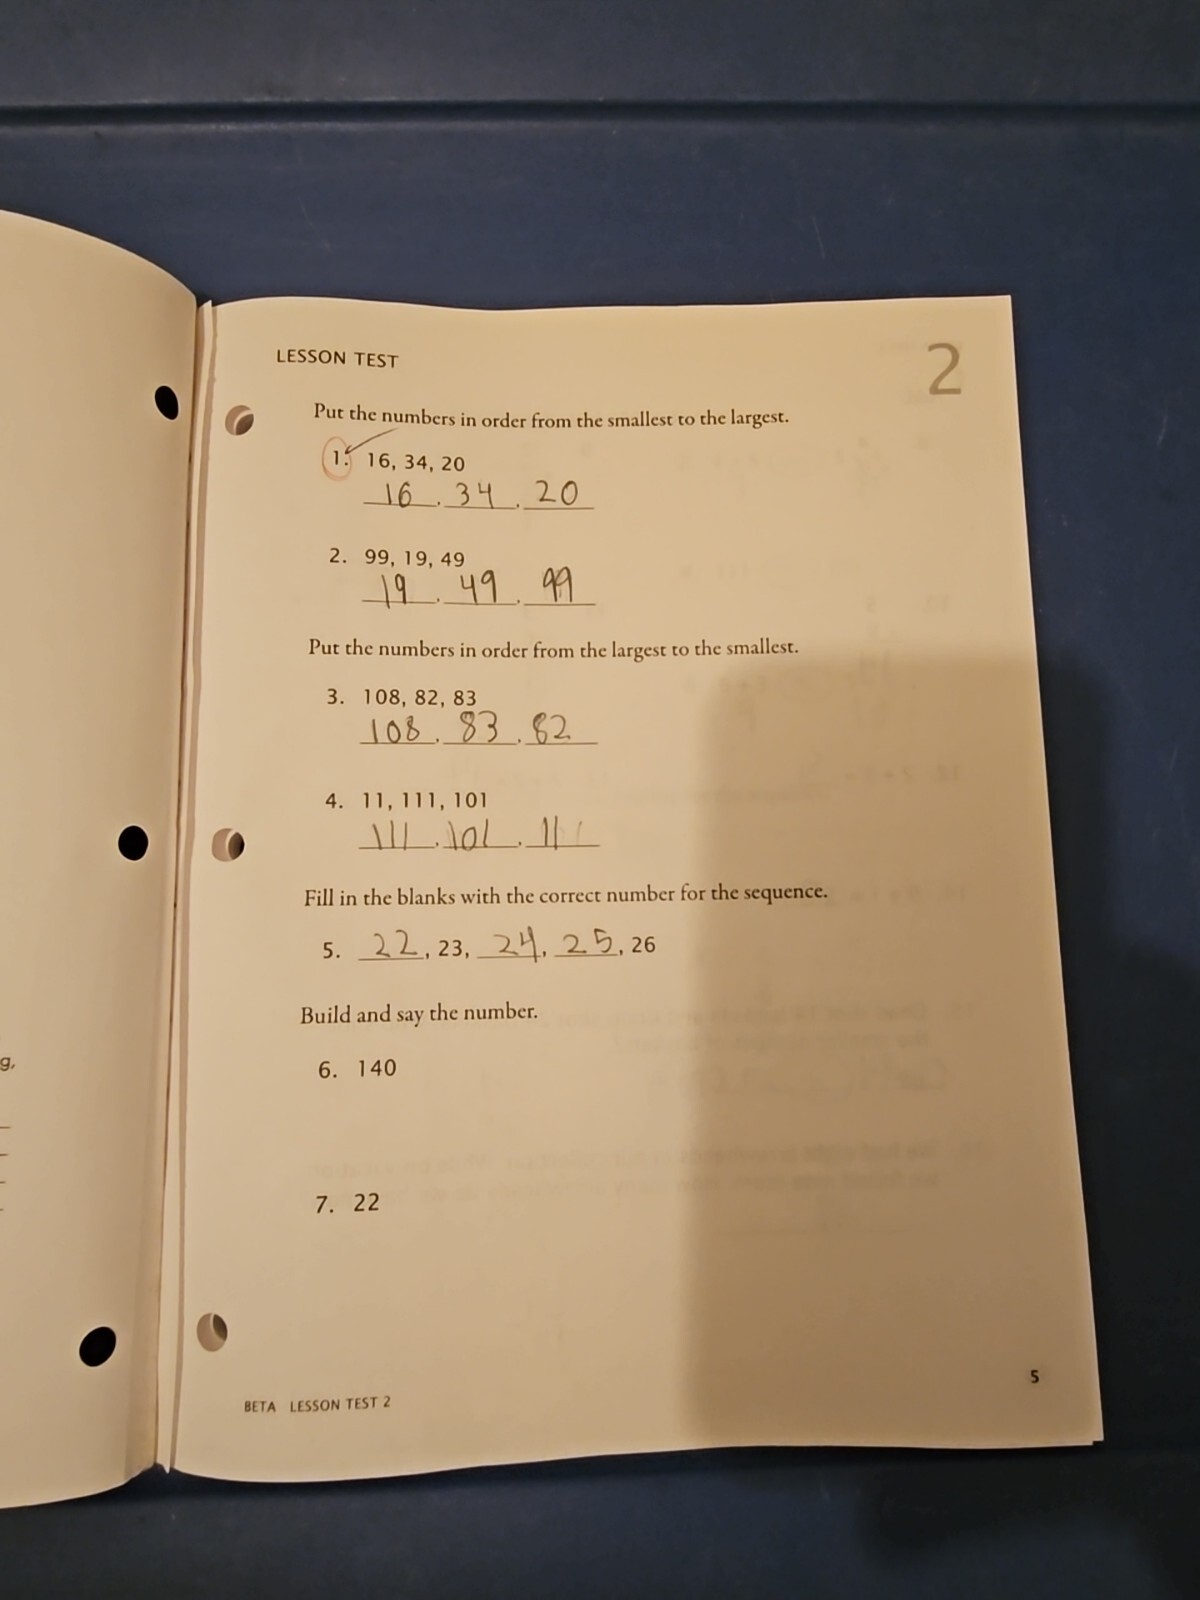 g,
LESSON TEST
2
Put the numbers in order from the smallest to the largest.
1. 16, 34, 20
16, 34, 20
2. 99, 19, 49
19, 49, 99
Put the numbers in order from the largest to the smallest.
3. 108, 82, 83
108, 83, 82
4. 11, 111, 101
111, 101, 11
Fill in the blanks with the correct number for the sequence.
5. 22, 23, 24, 25, 26
Build and say the number.
6. 140
7. 22
5
BETA LESSON TEST 2